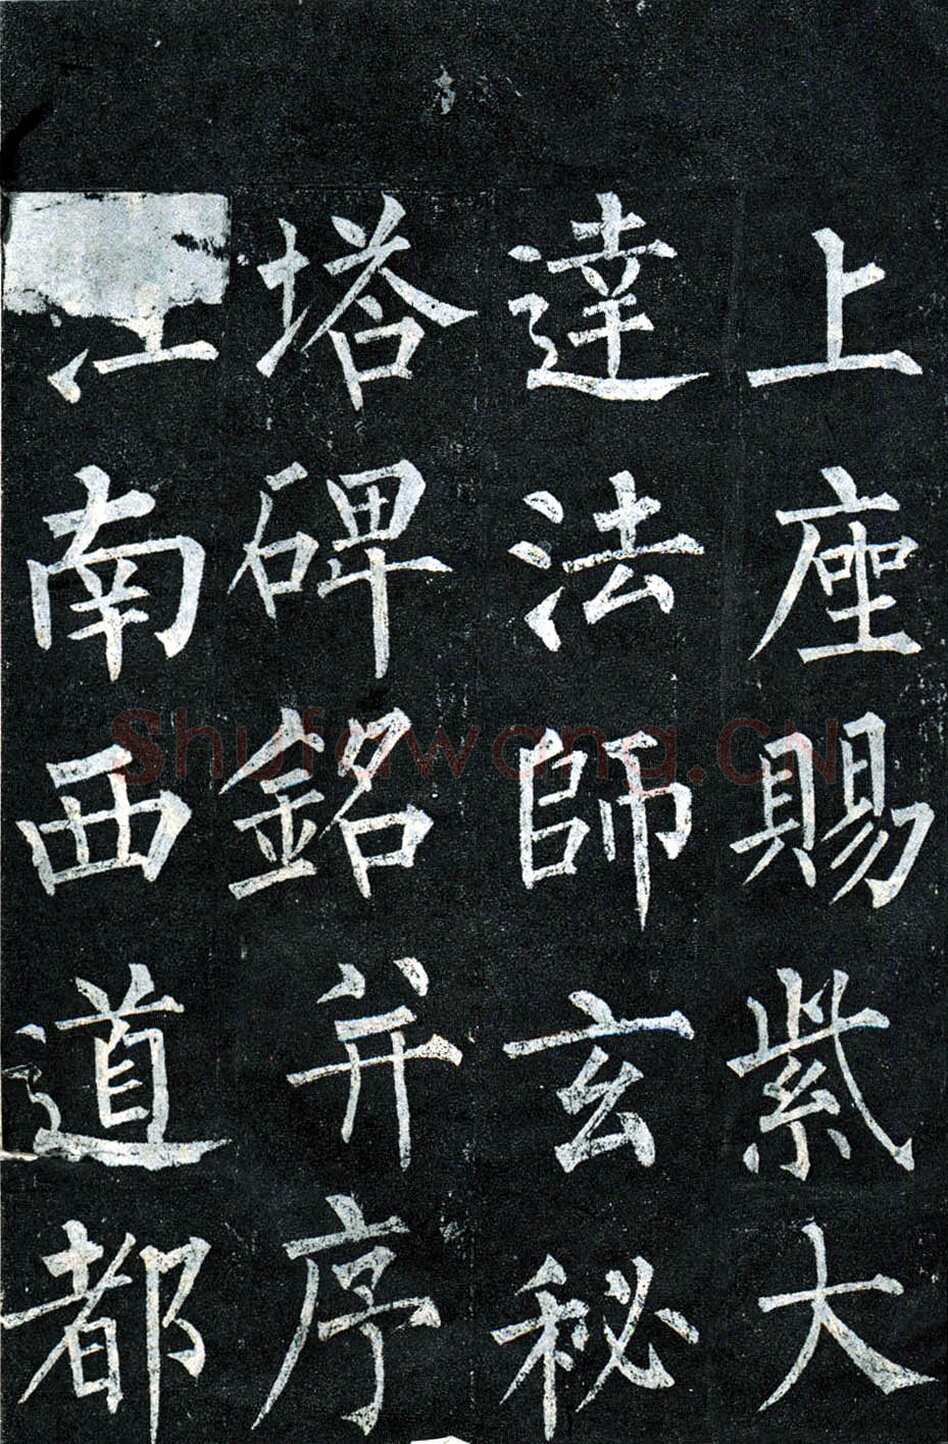 上座賜紫大
達法師玄秘
塔碑銘并序
江南西道都
Shufawang.CN